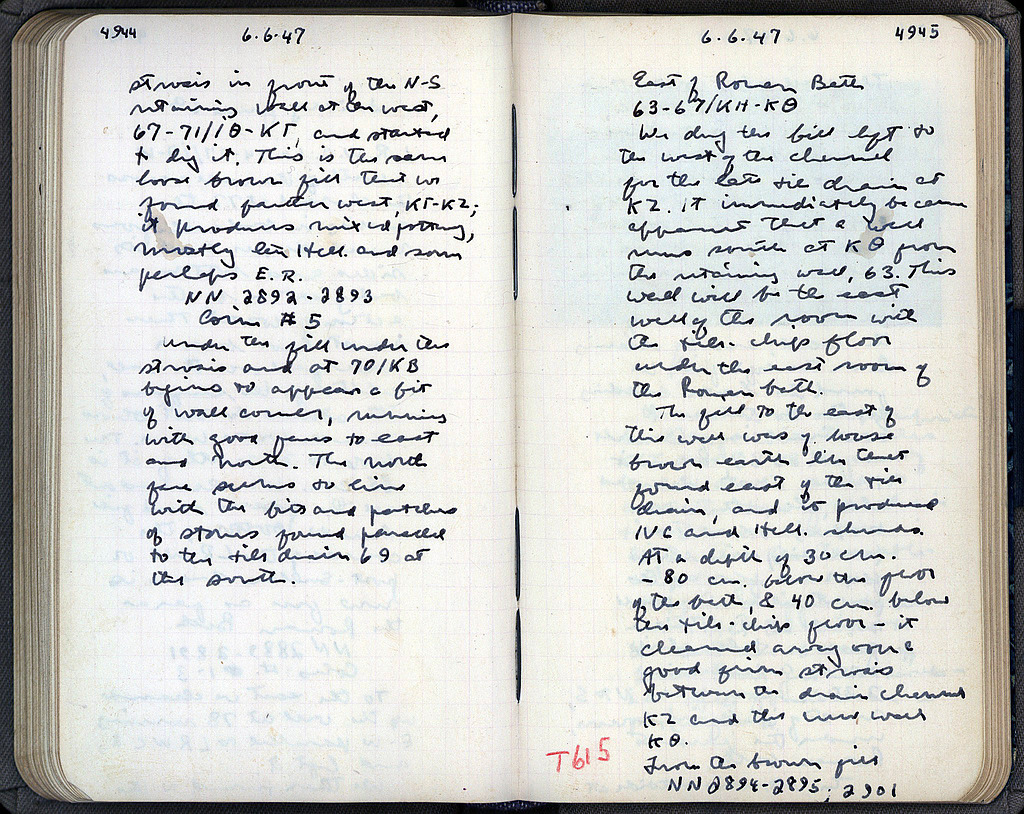 4944
6.6.47
strosis in front of the N-S
retaining wall at the west,
67-71/ΙΘ-ΚΓ, and started
to dig it. This is the same
loose brown fill that we
found farther west, ΚΓ-ΚΖ;
it produces mixed pottery,
mostly late Hell. and some
perhaps E.R.
NN 2892-2893
Coin #5
Under the fill under the
strosis and at 70/ΚΒ
begins to appear a bit
of wall corner, running
with good faces to east
and north. The north
face seems to line
with the bits and patches
of stones found parallel
to the tile drain 69 at
the south.
6.6.47
4945
East of Roman Bath
63-67/ΚΗ-ΚΘ
We dug the fill left to
the west of the channel
for the late tile drain at
ΚΖ. It immediately became
apparent that a wall
runs south at ΚΘ from
the retaining wall, 63. This
wall will be the east
wall of the room with
the tile-chip floor
under the east room of
the Roman bath.
The fill to the east of
this wall was of loose
brown earth like that
found east of the tile
drain, and it produced
IVC and Hell. sherds.
At a depth of 30 cm.
- 80 cm. below the floor
of the bath, & 40 cm. below
the tile-chip floor - it
cleaned away over a
good firm strosis
between the drain channel
ΚΖ and the new wall
ΚΘ.
From the brown fill
NN 2894-2895, 2901
T615